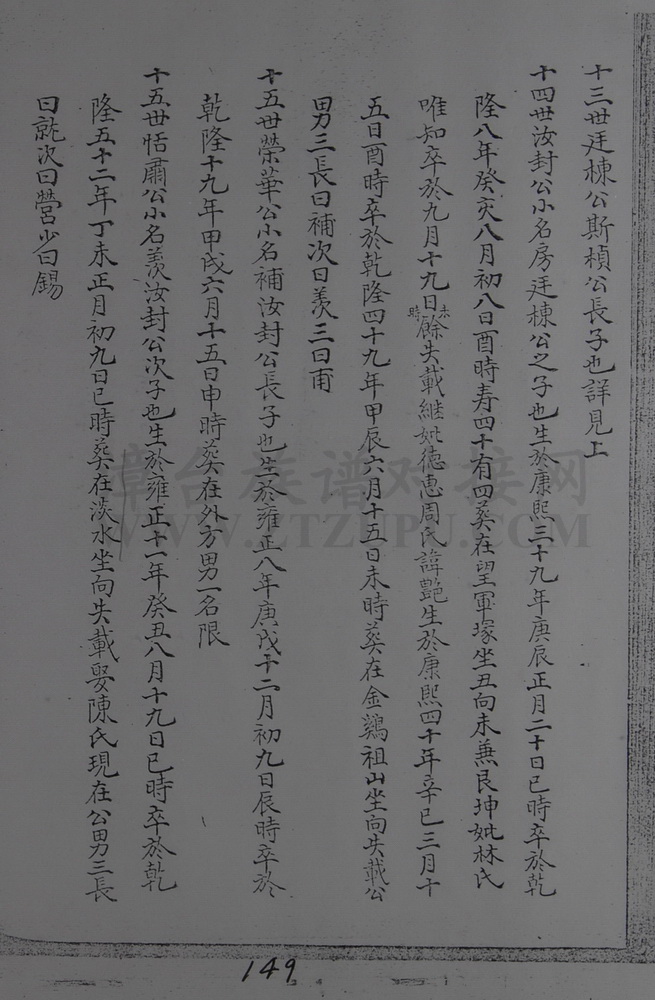 十三世廷棟公斯楨公長子也詳見上
十四世汝封公小名房廷棟公之子也生於康熙三十九年庚辰正月二十日巳時卒於乾
隆八年癸亥八月初八日酉時寿四十有四葬在望軍塚坐丑向未兼艮坤妣林氏
唯知卒於九月十九日未時餘失載継妣德惠周氏諱艷生於康熙四十年辛巳三月十
五日酉時卒於乾隆四十九年甲辰六月十五日未時葬在金鷄祖山坐向失載公
男三長曰補次曰羨三曰甫
十五世榮華公小名補汝封公長子也生於雍正八年庚戌十二月初九日辰時卒於
乾隆十九年甲戌六月十五日申時葬在外方男一名限
十五世恬肅公小名羨汝封公次子也生於雍正十一年癸丑八月十九日巳時卒於乾
隆五十二年丁未正月初九日巳時葬在淡水坐向失載娶陳氏現在公男三長
曰就次曰營少曰錫
章台族谱对接网
WWW.ZTZUPU.COM
149